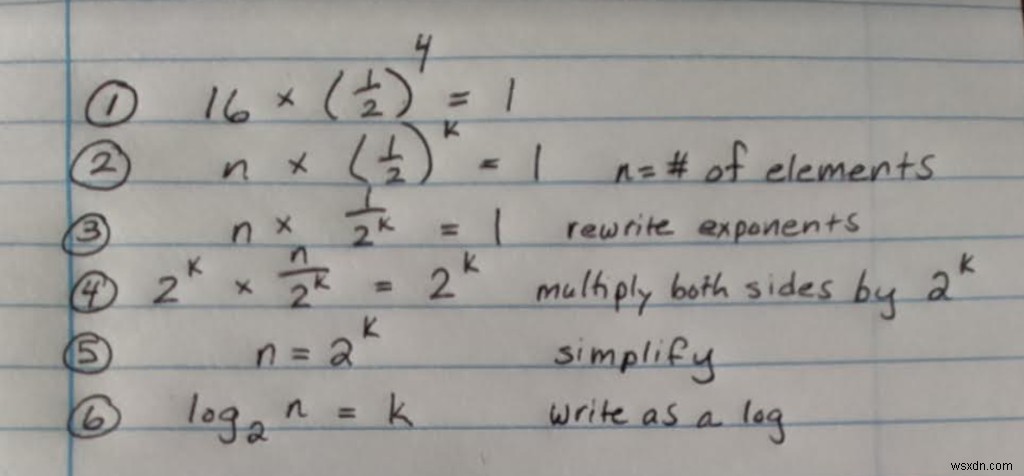 ① 16 × (1/2)⁴ = 1
② n × (1/2)ᵏ = 1 n = # of elements
③ n × 1/2ᵏ = 1 rewrite exponents
④ 2ᵏ × n/2ᵏ = 2ᵏ multiply both sides by 2ᵏ
⑤ n = 2ᵏ simplify
⑥ log₂ n = k write as a log
wsxdn.com